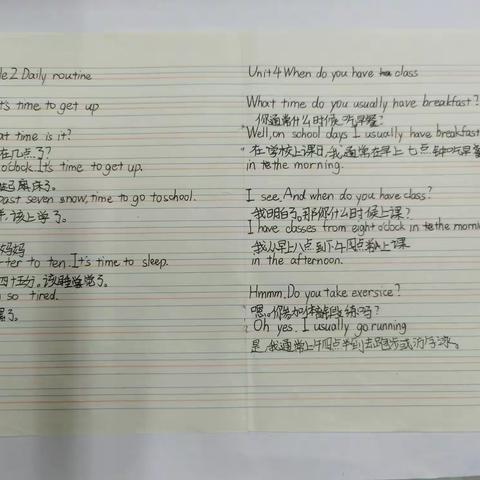 le2 Daily routine
t's time to get up
at time is it?
在几点了?
o'clock. It's time to get up.
离床了。
past seven now, time to go to school.
半,该上学了。
妈妈
rter to ten. It's time to sleep.
四十五分。该睡觉了。
so tired.
累了。
Unit 4 When do you have class
What time do you usually have breakfast?
你通常什么时候吃早餐?
Well, on school days I usually have breakfast
在学校上课日,我通常在早上七点钟吃早餐
in the morning.
I see. And when do you have class?
我明白了。那你什么时候上课?
I have classes from eight o'clock in the morni
我从早上八点到下午四点 上课
in the afternoon.
Hmmm. Do you take exersice?
嗯。你参加体育锻练吗?
Oh yes. I usually go running
是,我通常 四点半到去跑步或游泳。